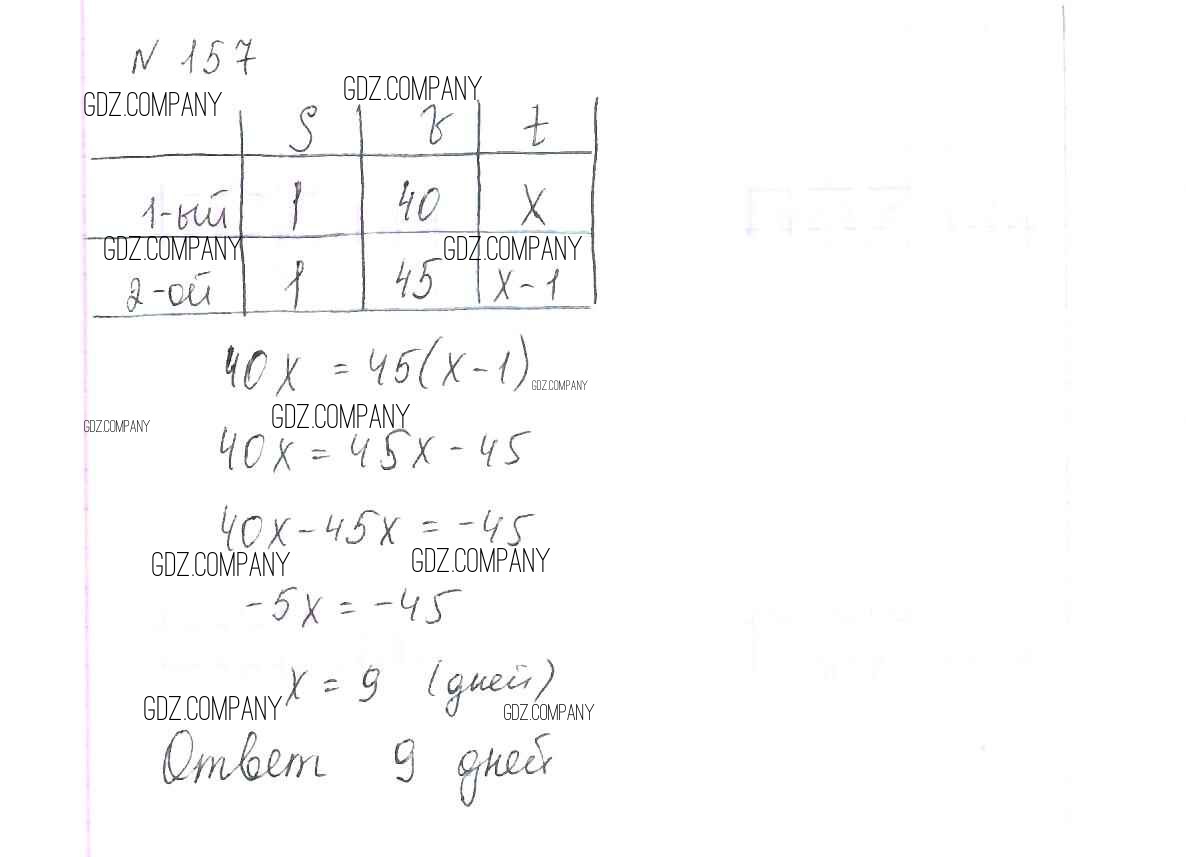 N 157
GDZ.COMPANY GDZ.COMPANY
S v t
1-ый 1 40 x
GDZ.COMPANY GDZ.COMPANY
2-ой 1 45 x-1
40x = 45(x-1)
GDZ.COMPANY
GDZ.COMPANY GDZ.COMPANY
40x = 45x - 45
40x - 45x = -45
GDZ.COMPANY GDZ.COMPANY
-5x = -45
x = 9 (дней)
GDZ.COMPANY GDZ.COMPANY
Ответ 9 дней